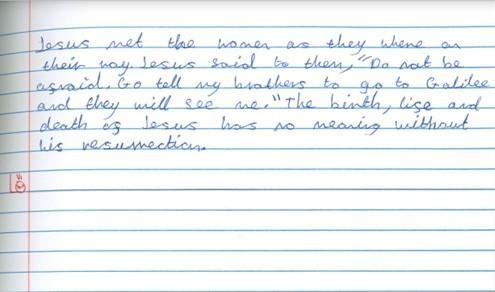 Jesus met the women as they where on
their way. Jesus said to them, "Do not be
afraid. Go tell my brothers to go to Galilee
and they will see me." The birth, life and
death of Jesus has no meaning without
his resurrection.